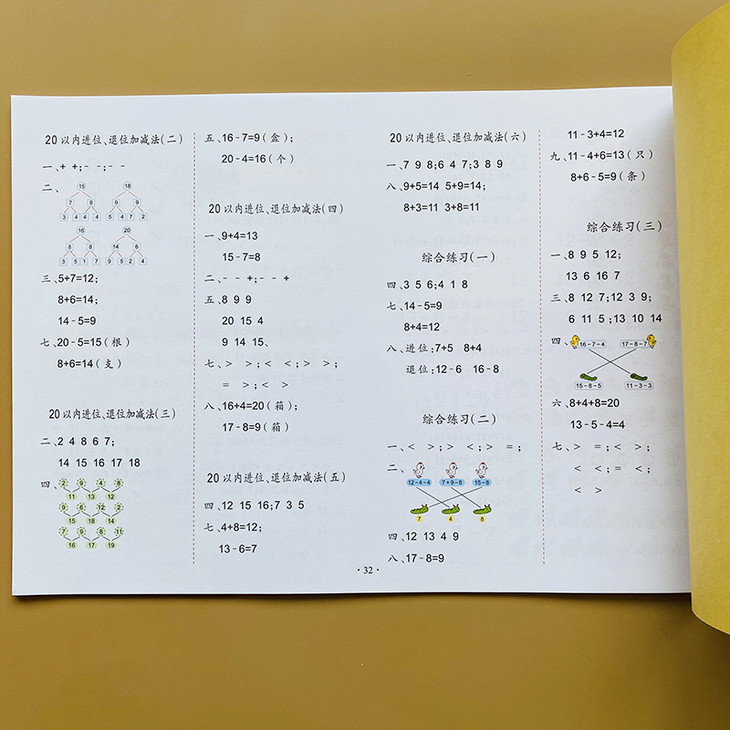 20以内进位、退位加减法(二)
一、+ +;- -;- -
二、
15 18
7 8 9 9
3 4 4 4 5 4 7 2
16 20
8 8 14 6
3 5 1 7 9 5 2 4
三、5+7=12;
8+6=14;
14-5=9
七、20-5=15(根)
8+6=14(支)
20以内进位、退位加减法(三)
二、2 4 8 6 7;
14 15 16 17 18
四、
2 9 4 8
11 13 12
9 6 12 2
15 18 14
7 9 8 11
16 17 19
五、16-7=9(盒);
20-4=16(个)
20以内进位、退位加减法(四)
一、9+4=13
15-7=8
二、- - +;- - +
五、8 9 9
20 15 4
9 14 15、
七、> >;< <;> >;
= >;< >
八、16+4=20(箱);
17-8=9(箱)
20以内进位、退位加减法(五)
四、12 15 16;7 3 5
七、4+8=12;
13-6=7
20以内进位、退位加减法(六)
一、7 9 8;6 4 7;3 8 9
八、9+5=14 5+9=14;
8+3=11 3+8=11
综合练习(一)
四、3 5 6;4 1 8
七、14-5=9
8+4=12
八、进位:7+5 8+4
退位:12-6 16-8
综合练习(二)
一、< >;> <;> =;
二、
12-4-4 7+9-8 15-8
7 4 8
四、12 13 4 9
八、17-8=9
11-3+4=12
九、11-4+6=13(只)
8+6-5=9(条)
综合练习(三)
一、8 9 5 12;
13 6 16 7
三、8 12 7;12 3 9;
6 11 5;13 10 14
四、
16-7-4 17-8-7
15-8-5 11-3-3
六、8+4+8=20
13-5-4=4
七、> =;< >;
< <;= <;
< >
·32·